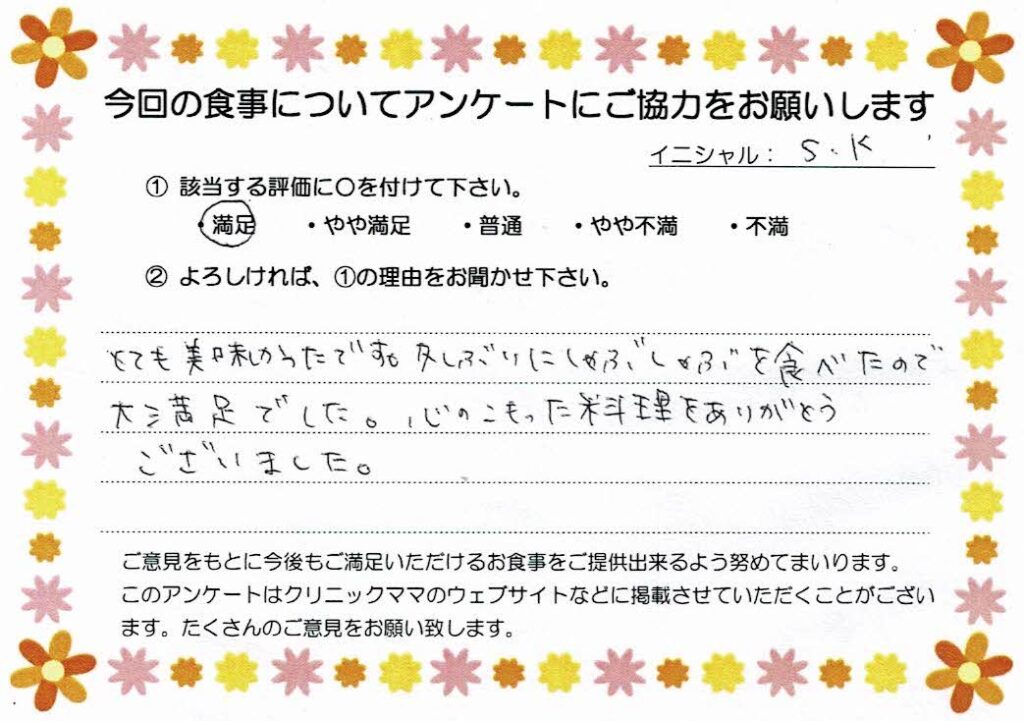 今回の食事についてアンケートにご協力をお願いします
イニシャル： S.K
① 該当する評価に〇を付けて下さい。
・満足 ・やや満足 ・普通 ・やや不満 ・不満
② よろしければ、①の理由をお聞かせ下さい。
とても美味しかったです。久しぶりにしゃぶしゃぶを食べたので
大満足でした。心のこもった料理をありがとう
ございました。
ご意見をもとに今後もご満足いただけるお食事をご提供出来るよう努めてまいります。
このアンケートはクリニックママのウェブサイトなどに掲載させていただくことがござい
ます。たくさんのご意見をお願い致します。